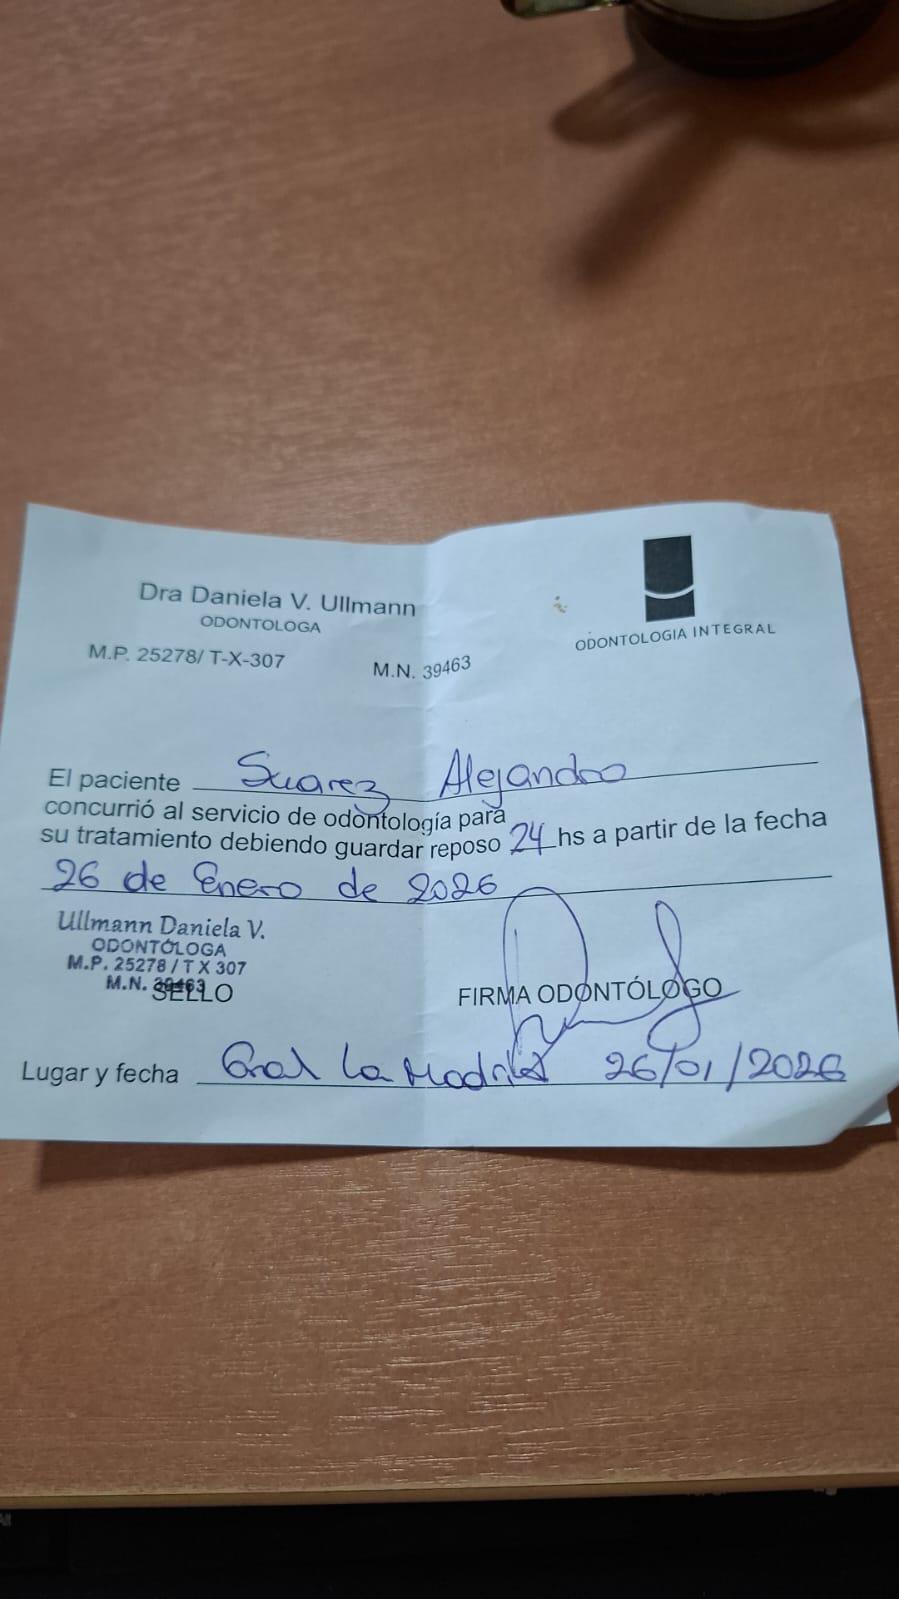 Dra Daniela V. Ullmann
ODONTOLOGA
M.P. 25278/ T-X-307 M.N. 39463
ODONTOLOGIA INTEGRAL
El paciente Suarez Alejandro
concurrió al servicio de odontología para
su tratamiento debiendo guardar reposo 24 hs a partir de la fecha
26 de Enero de 2026
Ullmann Daniela V.
ODONTÓLOGA
M.P. 25278 / T X 307
M.N. 39463
SELLO
FIRMA ODONTÓLOGO
Lugar y fecha Gral La Madrid 26/01/2026